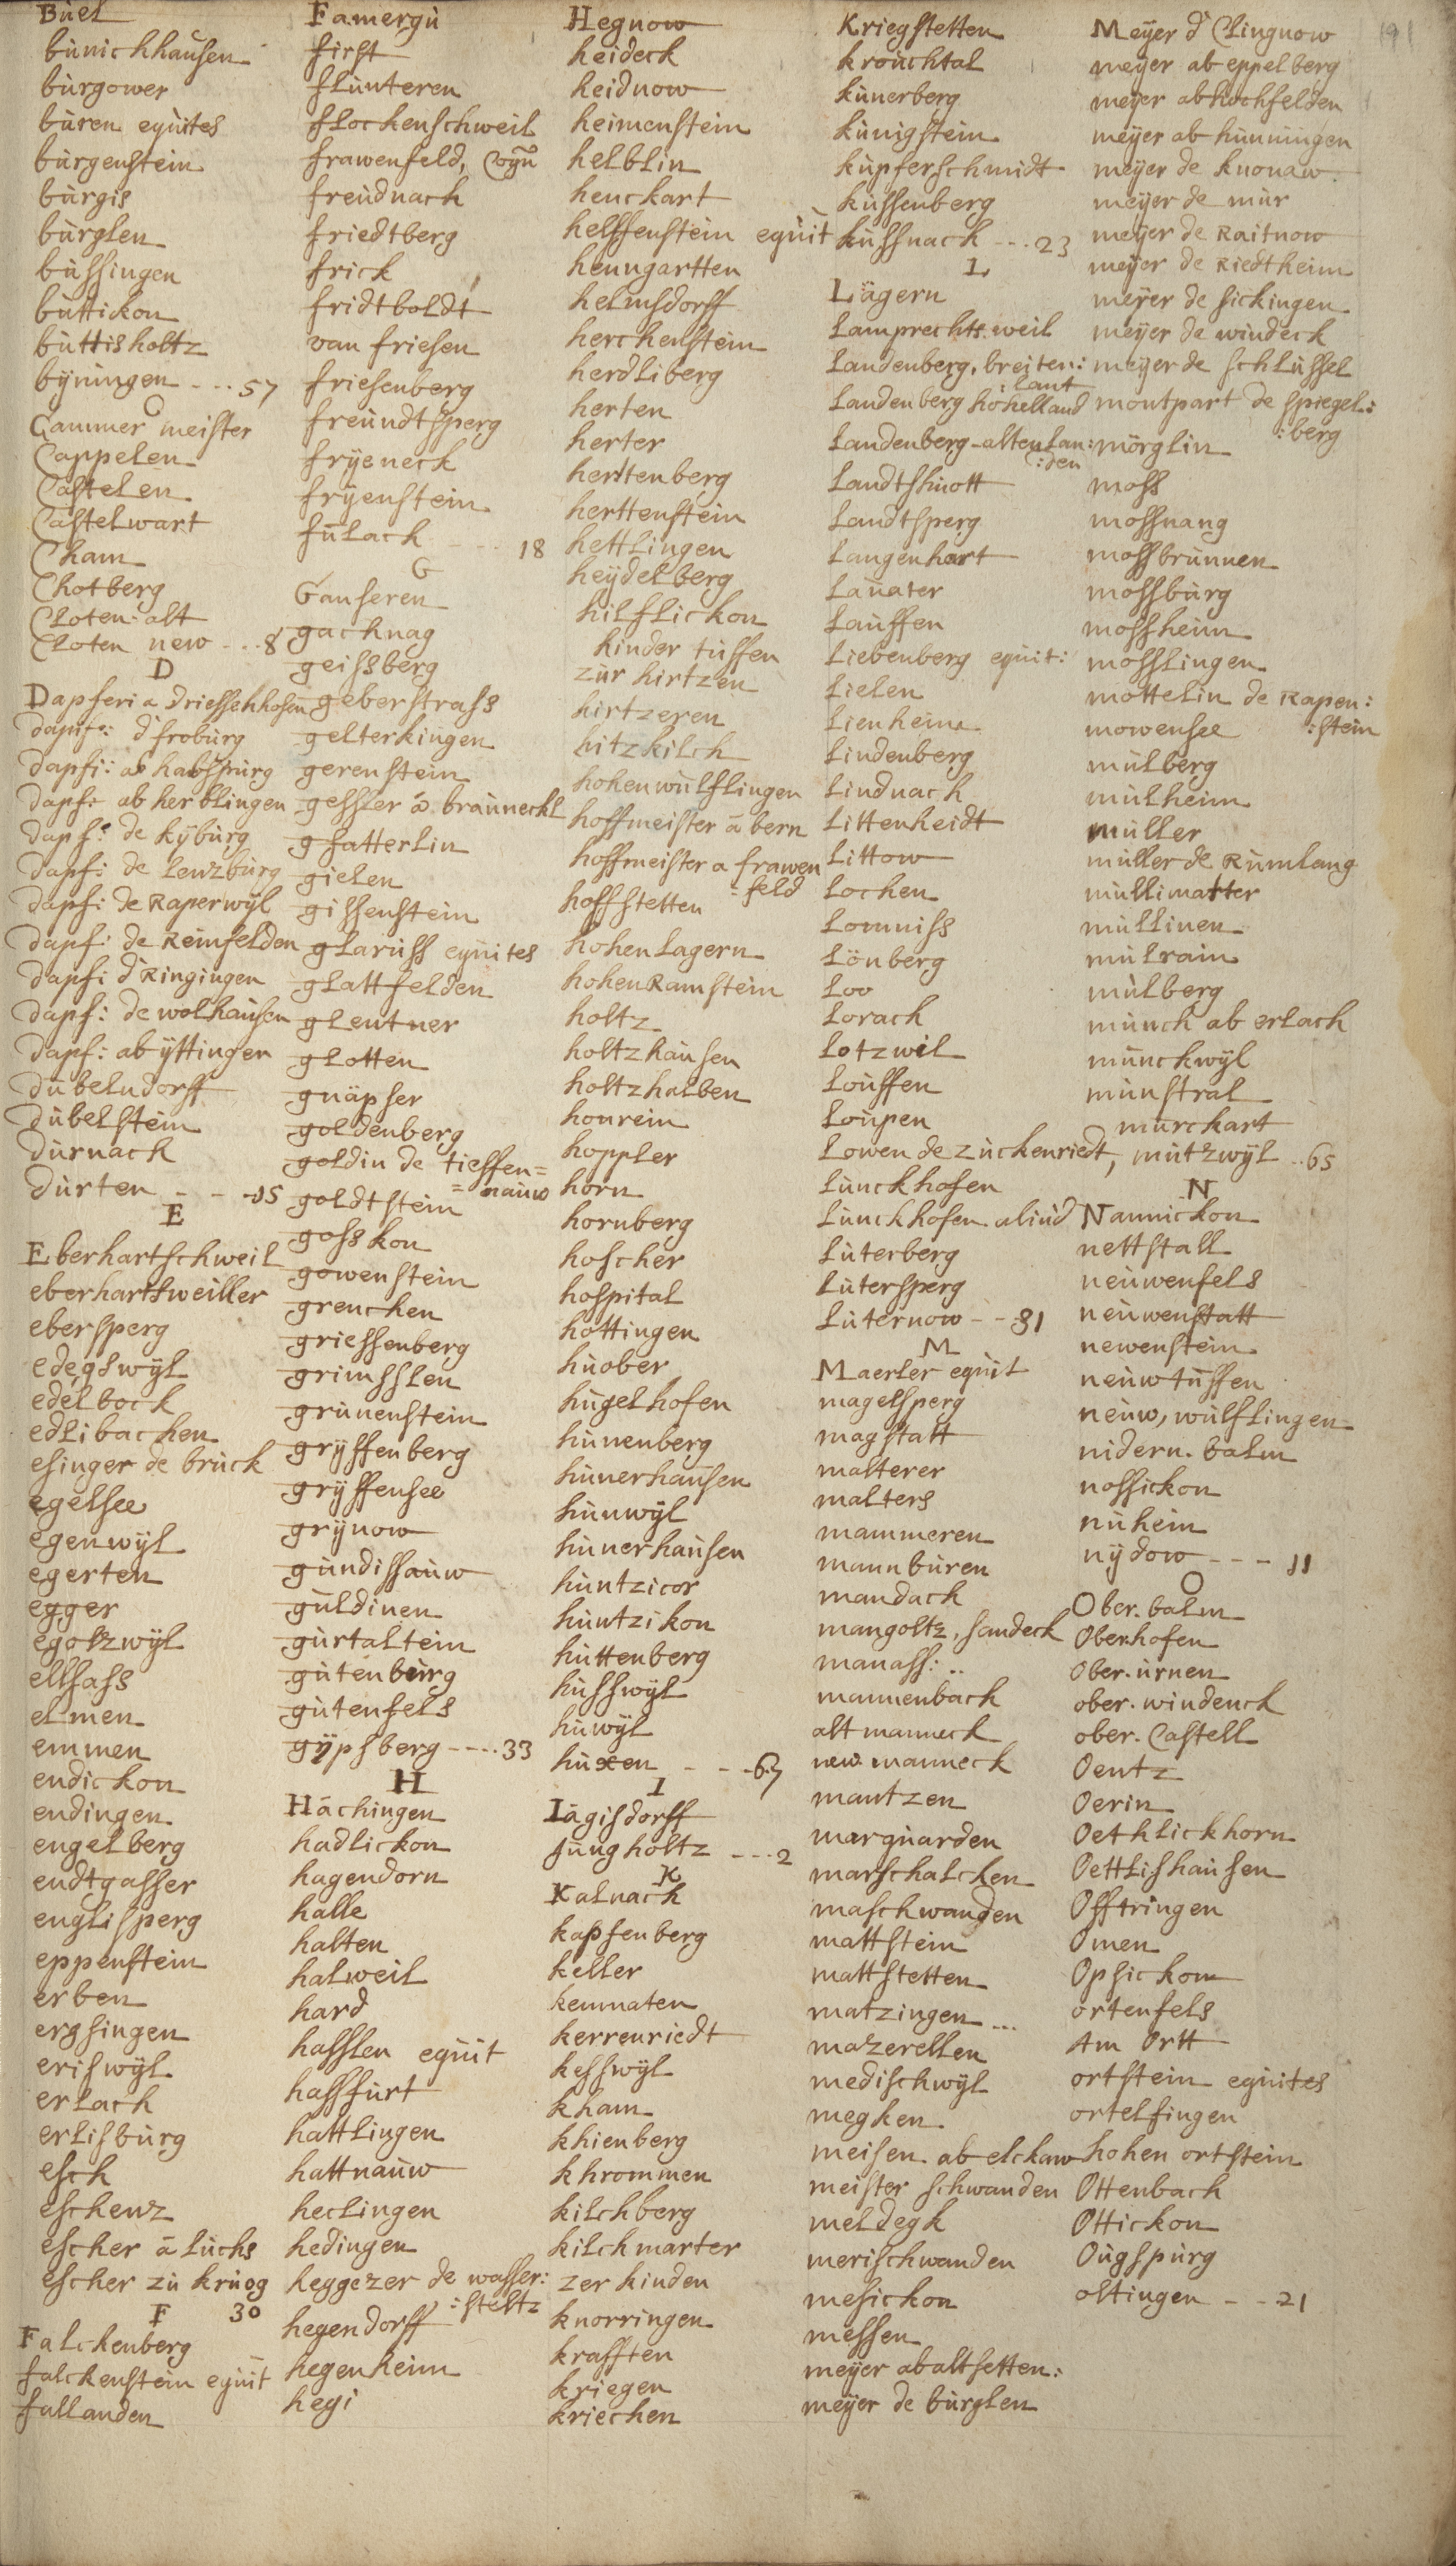 Büel
bünichhausen
bürgower
büren equites
bürgenstein
bürgis
bürglen
büssingen
büttickon
büttisholtz
bÿningen - - - 57
C
Cammer meister
Cappelen
Castelen
Castelwart
Cham
Chotberg
Cloten alt
Cloten new - - - 8
D
Dapferi a driessenhofen
dapf: d' froburg
dapf: ab habspurg
dapf: ab herblingen
dapf: de kÿburg
dapf: de lenzburg
dapf: de Raperwÿl
dapf: de Reinfelden
dapf: d' Ringingen
dapf: de wolhausen
dapf: ab ÿttingen
dubelndorff
dübelstein
dürnach
dürten - - - 15
E
Eberhartschweil
eberhartsweiller
ebersperg
edegswÿl
edelbock
edlibachen
esinger de bruck
egelsee
egenwÿl
egerten
egger
egolzwÿl
ellsass
elmen
emmen
endickon
endingen
engelberg
endtgasser
englisperg
eppenstein
erben
ergsingen
eriswÿl
erlach
erlisbürg
esch
eschenz
escher ā lüchs
escher zü krüog
30
F
Falckenberg
falckenstein equit
fallanden
Famergü
first
flünteren
flockenschweil
frawenfeld, Vogü
freüdnach
friedtberg
frick
fridtboldt
van friesen
friesenberg
freündtsperg
frÿeneck
frÿenstein
fülach - - - 18
G
Gauseren
gachnag
geissberg
geberstrass
gelterkingen
gerenstein
gessler a brauneckh
gfatterlin
gielen
gissenstein
glarüss equites
glattfelden
gleutner
glotten
gnäpser
goldenberg
goldin de tieffen=
=nauw
goldtstein
gosskon
gowenstein
grenchen
griessenberg
grimsslen
grünenstein
grÿffenberg
grÿffensee
grÿnow
gündissauw
güldinen
gürtaltein
gütenbürg
gütenfels
gÿpsberg - - - - 33
H
Hächingen
hadlickon
hagendorn
halle
halten
halweil
hard
hasslen equit
hassfürt
hattlingen
hattnauw
heclingen
hedingen
heggezer de wasser:
:steltz
hegendorff
hegenheim
hegi
Hegnow
heideck
heidnow
heimenstein
helblin
henckart
helffenstein equit
henngartten
helmsdorff
herchenstein
herdliberg
herten
herter
herttenberg
herttenstein
hettlingen
heÿdelberg
hilflickon
hinder tüffen
zür hirtzen
hirtzeren
hitzkilch
hohenwülflingen
hoffmeister ā bern
hoffmeister a frawen
:feld
hoffstetten
hohenlagern
hohenRamstein
holtz
holtzhausen
holtzhalben
honrein
hoppler
horn
hornberg
hoscher
hospital
hottingen
hüober
hügelhofen
hünenberg
hünerhausen
hünwÿl
hünerhaüsen
hüntzicor
hüntzikon
hüttenberg
hüsswÿl
hüwÿl
hüxen - - - 67
I
Iägisdorff
Jüngholtz - - - 2
K
Kalnach
kapfenberg
keller
kemnaten
kerrenriedt
kesswÿl
kham
khienberg
khrommen
kilchberg
kilchmarter
zer kinden
knorringen
krafften
kriegen
kriechen
Kriegstetten
krouchtal
künerberg
künigstein
küpferschmidt
küssenberg
küssnach - - - 23
L
Lägern
Lamprechtsweil
Landenberg, breiten:
:lant
Landenberg hohelland
Landenberg-alten lan:
:den
Landtshüott
Landtsperg
Langenhart
Lauater
Lauffen
Liebenberg equit:
Lielen
Lienheim
Lindenberg
Lindnach
Littenheidt
Littow
Lochen
Lomniss
Lönberg
Loo
Lorach
Lotzwil
Louffen
Loupen
Lowen de zuckenriedt,
Lünckhofen
Lünckhofen aliud
Lüterberg
Lütersperg
Lüternow - - 31
M
Maerler equit
magelsperg
magstatt
malterer
malters
mammeren
mannbüren
mandach
mangoltz, sandeck
manass: ..
mannenbach
alt manneck
new manneck
mantzen
marquarden
marschalcken
maschwanden
mattstein
mattstetten
matzingen ...
mazerellen
medischwÿl
megken
meisen ab elckaw
meister schwanden
meldegk
merischwanden
mesickon
messen
meÿer ab altsetten:
meÿer de bürglen
Meÿer d' Clingnow
meÿer ab eppelberg
meÿer ab hochfelden
meÿer ab hünningen
meÿer de knonaw
meÿer de mür
meÿer de Raitnow
meÿer de Riedtheim
meÿer de sickingen
meÿer de windeck
meÿer de schlüssel
montpart de spiegel:
:berg
mörglin
moss
mossnang
mossbrünnen
mossbürg
mossheim
mosslingen
mottelin de Rapen:
:stein
mowensee
mülberg
mülheim
müller
müller de Rümlang
müllimatter
müllinen
mülrain
mülberg
münch ab erlach
münckwÿl
münstral
mürckart
mutzwÿl .. 65
N
Nannickon
nettstall
neüwenfels
neüwenstatt
newenstein
neüwtüffen
neüw, wülflingen
nidern. balm
nossickon
nüheim
nÿdow - - - 11
O
Ober. balm
Oberhofen
ober. ürnen
ober. windenck
ober. Castell
Oentz
Oerin
Oethlickhorn
Oettlishaüsen
Offtringen
Omen
Opsickon
ortenfels
Am Ortt
ortstein equites
ortelfingen
hohen ortstein
Ottenbach
Ottickon
Oügspürg
oltingen - - 21
191